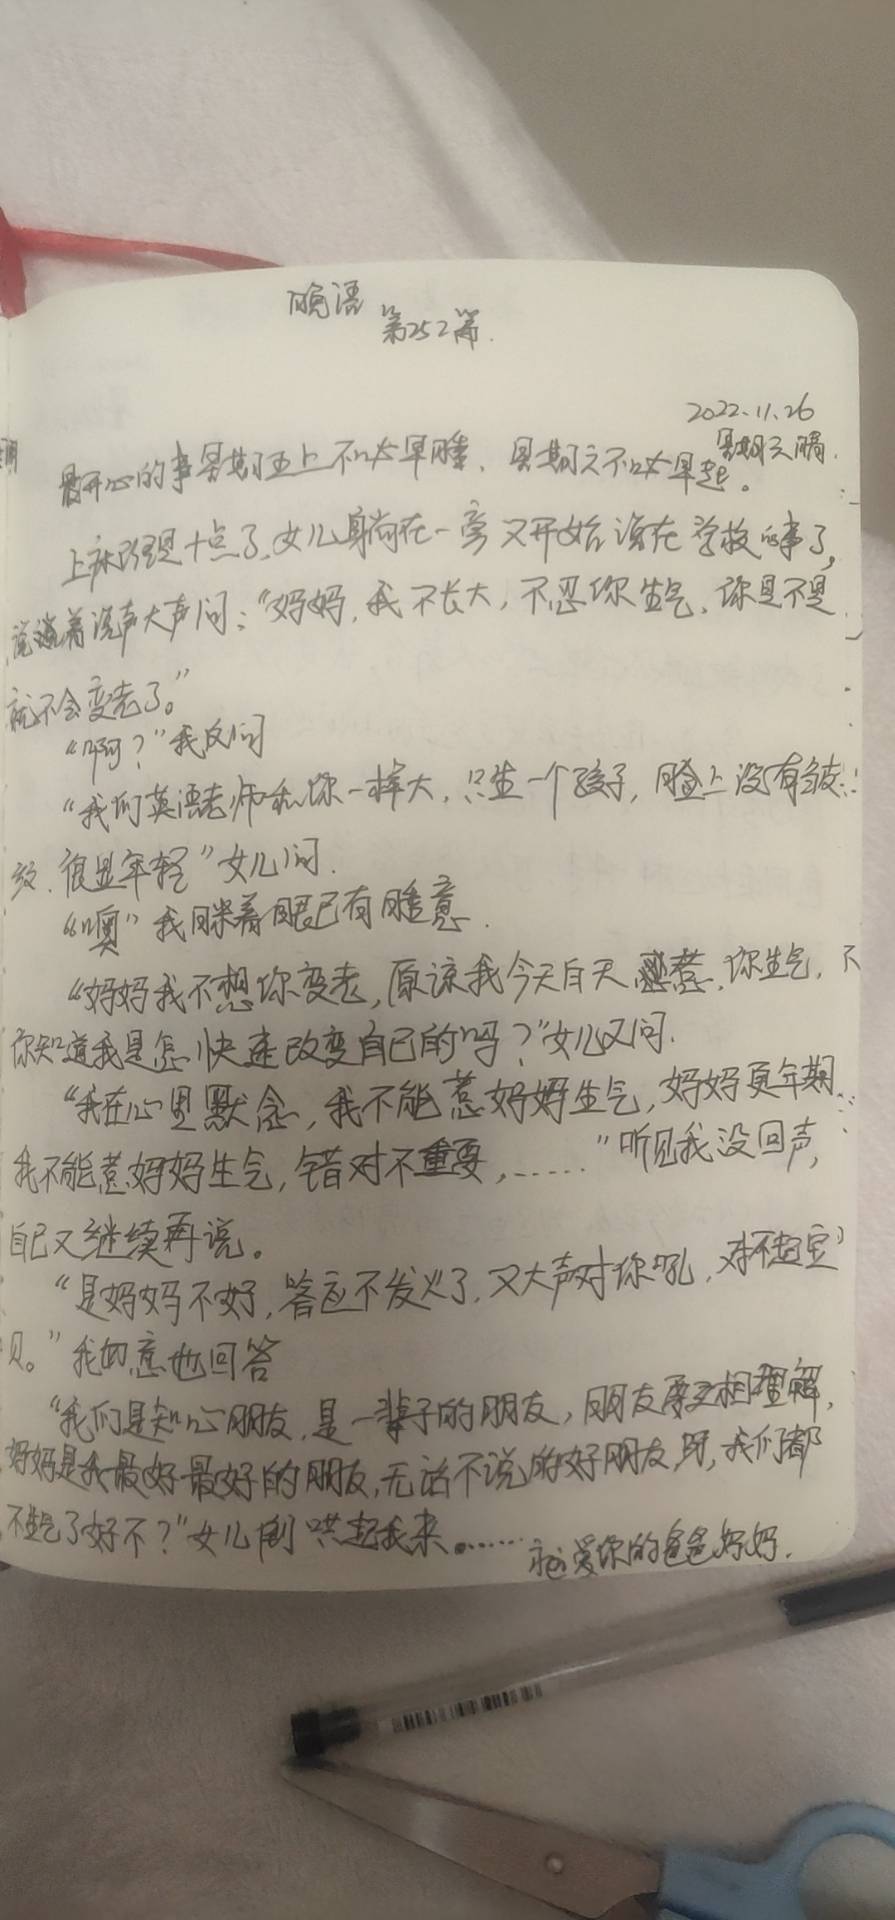 晓语
第252篇.
2022.11.26
星期六 晴.
最开心的事星期五上不以太早睡、星期六不以太早起。
上床已经是十点了,女儿躺在一旁又开始说在学校的事了,
说着着 大声问:“妈妈,我不长大,不惹你生气,你是不是
就不会变老了。”
“啊?”我反问
“我们英语老师和你一样大,只生一个孩子,脸上没有皱
纹.很显年轻”女儿问.
“噢”我眯着眼已有睡意.
“妈妈我不想你变老,原谅我今天白天惹你生气,不
你知道我是怎快速改变自己的吗?”女儿又问.
“我在心里默念,我不能惹妈妈生气,妈妈更年期
我不能惹妈妈生气,错对不重要,……”听见我没回声,
自己又继续再说。
“是妈妈不好,答应不发火了,又大声对你吼,对不起宝
贝。”我如意地回答
“我们是知心朋友,是一辈子的朋友,朋友要互相理解,
妈妈是我最好最好的朋友,无话不说的好朋友,我们都
不生气了好不?”女儿倒哄起我来。……
永远爱你的爸爸妈妈.